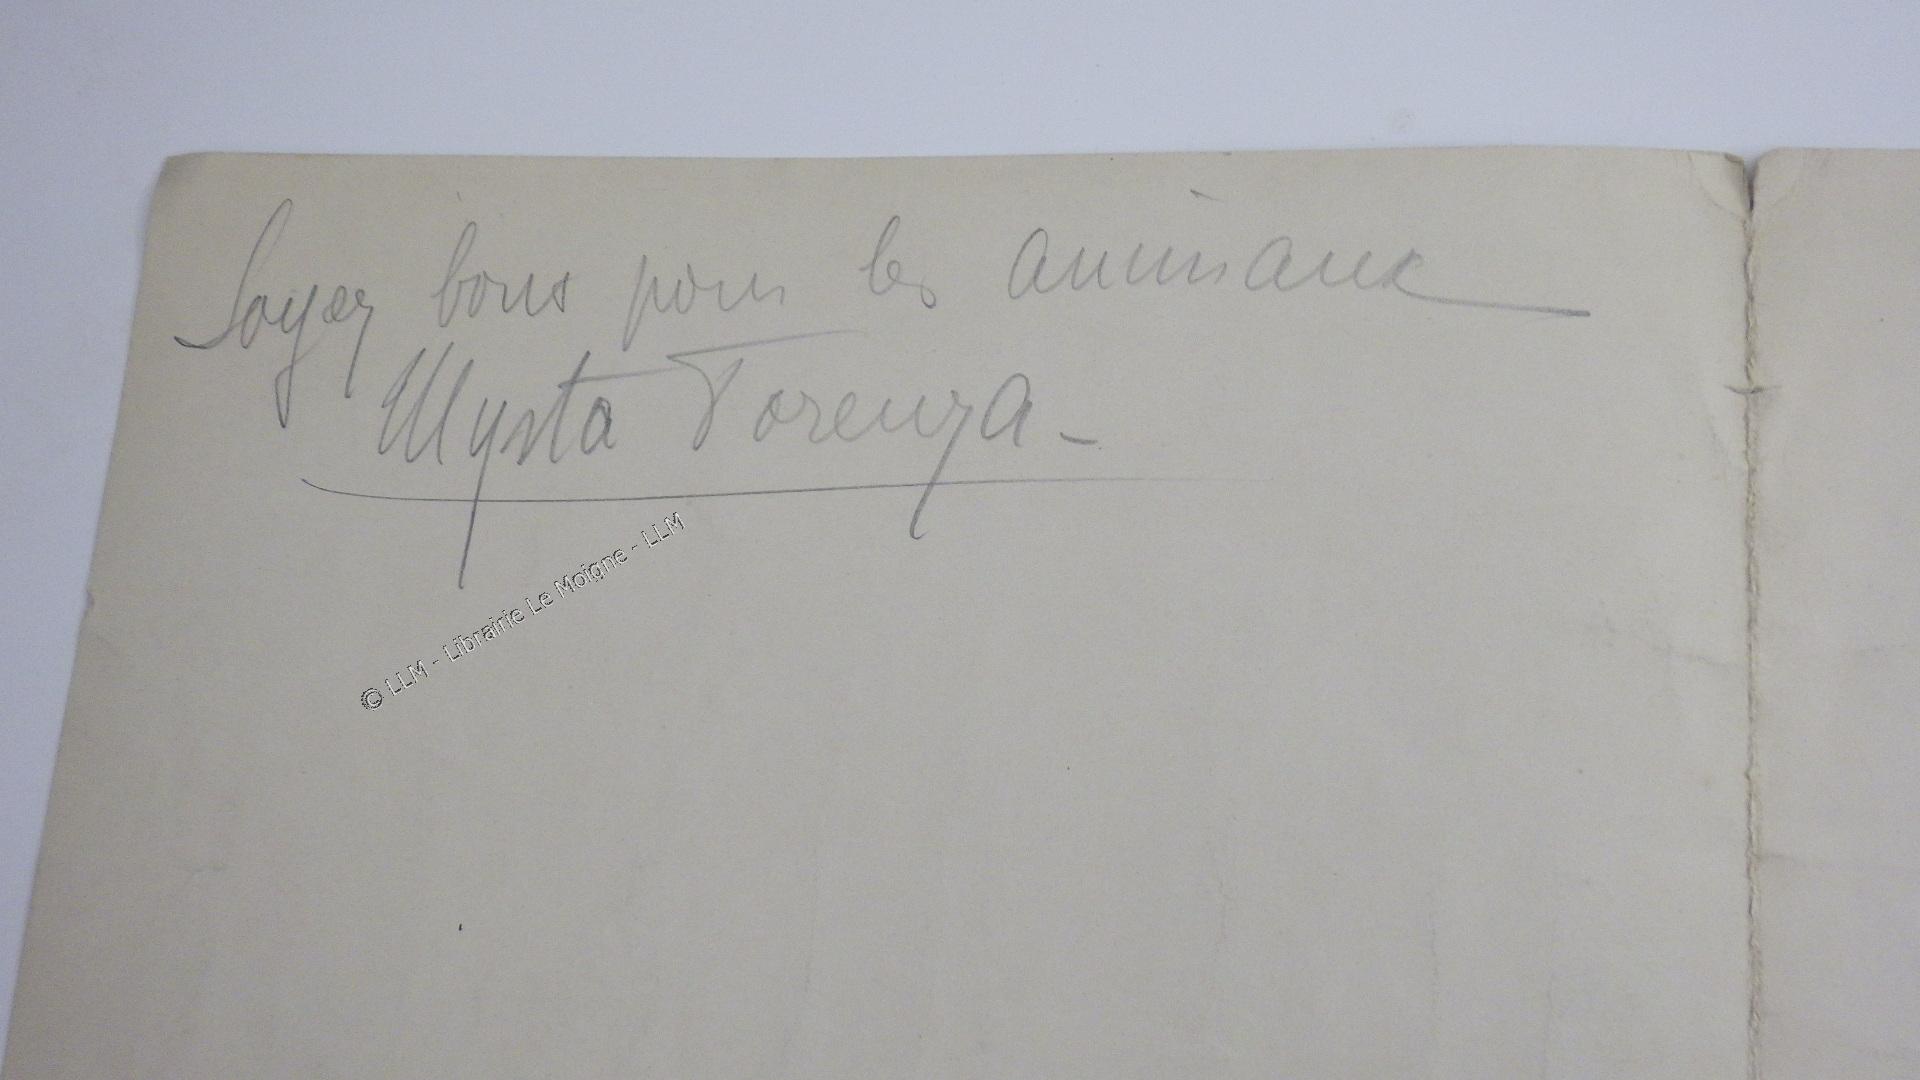 Soyez bons pour les animaux
Mysta Torenza -
© LLM - Librairie Le Moigne - LLM